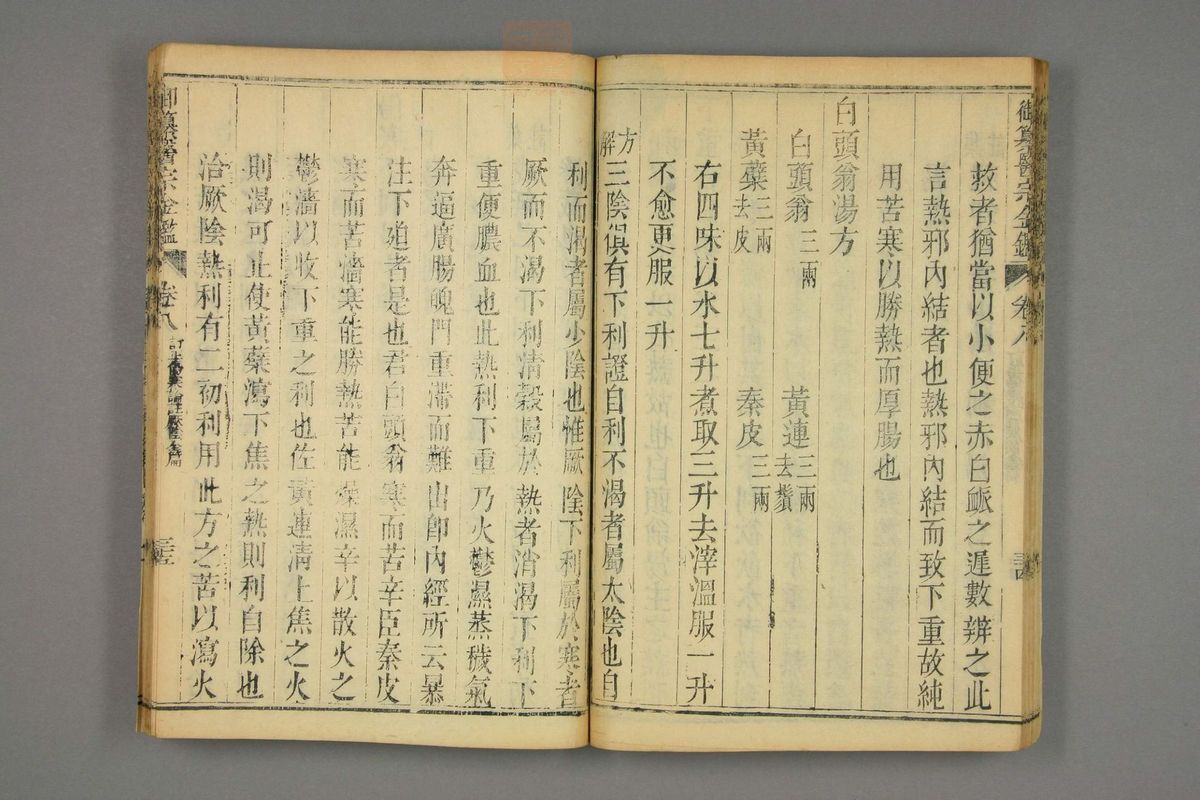 御纂醫宗金鑑 卷八
救者猶當以小便之赤白脈之遲數辨之此
言熱邪內結者也熱邪內結而致下重故純
用苦寒以勝熱而厚腸也
白頭翁湯方
白頭翁三兩 黃連三兩去鬚
黃蘗三兩去皮 秦皮三兩
右四味以水七升煮取三升去滓溫服一升
不愈更服一升
方解三陰俱有下利證自利不渴者屬太陰也自
利而渴者屬少陰也惟厥陰下利屬於寒者
厥而不渴下利清穀屬於熱者消渴下利下
重便膿血也此熱利下重乃火鬱濕蒸穢氣
奔逼廣腸魄門重滯而難出卽內經所云暴
注下廹者是也君白頭翁寒而苦辛臣秦皮
寒而苦濇寒能勝熱苦能燥濕辛以散火之
鬱濇以收下重之利也佐黃連清上焦之火
則渴可止使黃蘗瀉下焦之熱則利自除也
治厥陰熱利有二初利用此方之苦以瀉火
御纂醫宗金鑑 卷八